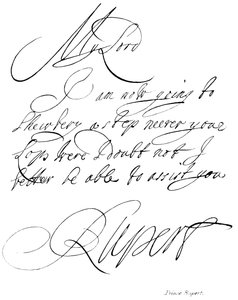 My Lord
I am now going to
Shewsbery a step neerer your
Lops were I doubt not I
better be able to assist you
Rupert
Prince Rupert.